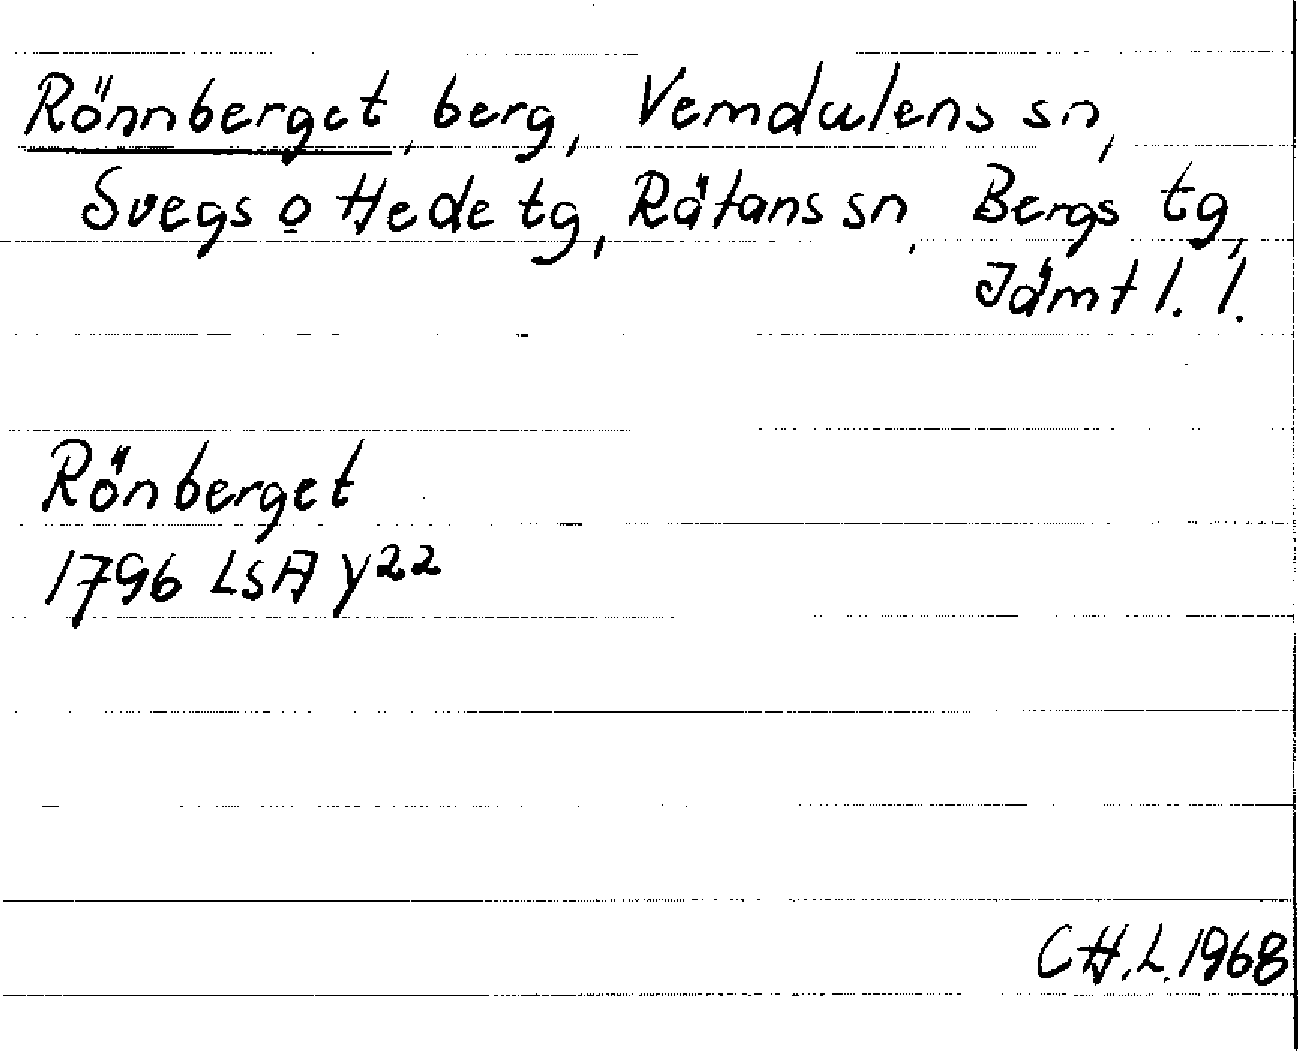 Rönnberget, berg, Vemdalens sn,
Svegs o Hede tg, Rätans sn, Bergs tg,
Jämtl. l.
Rönberget
1796 LSA Y22
CH.L. 1968